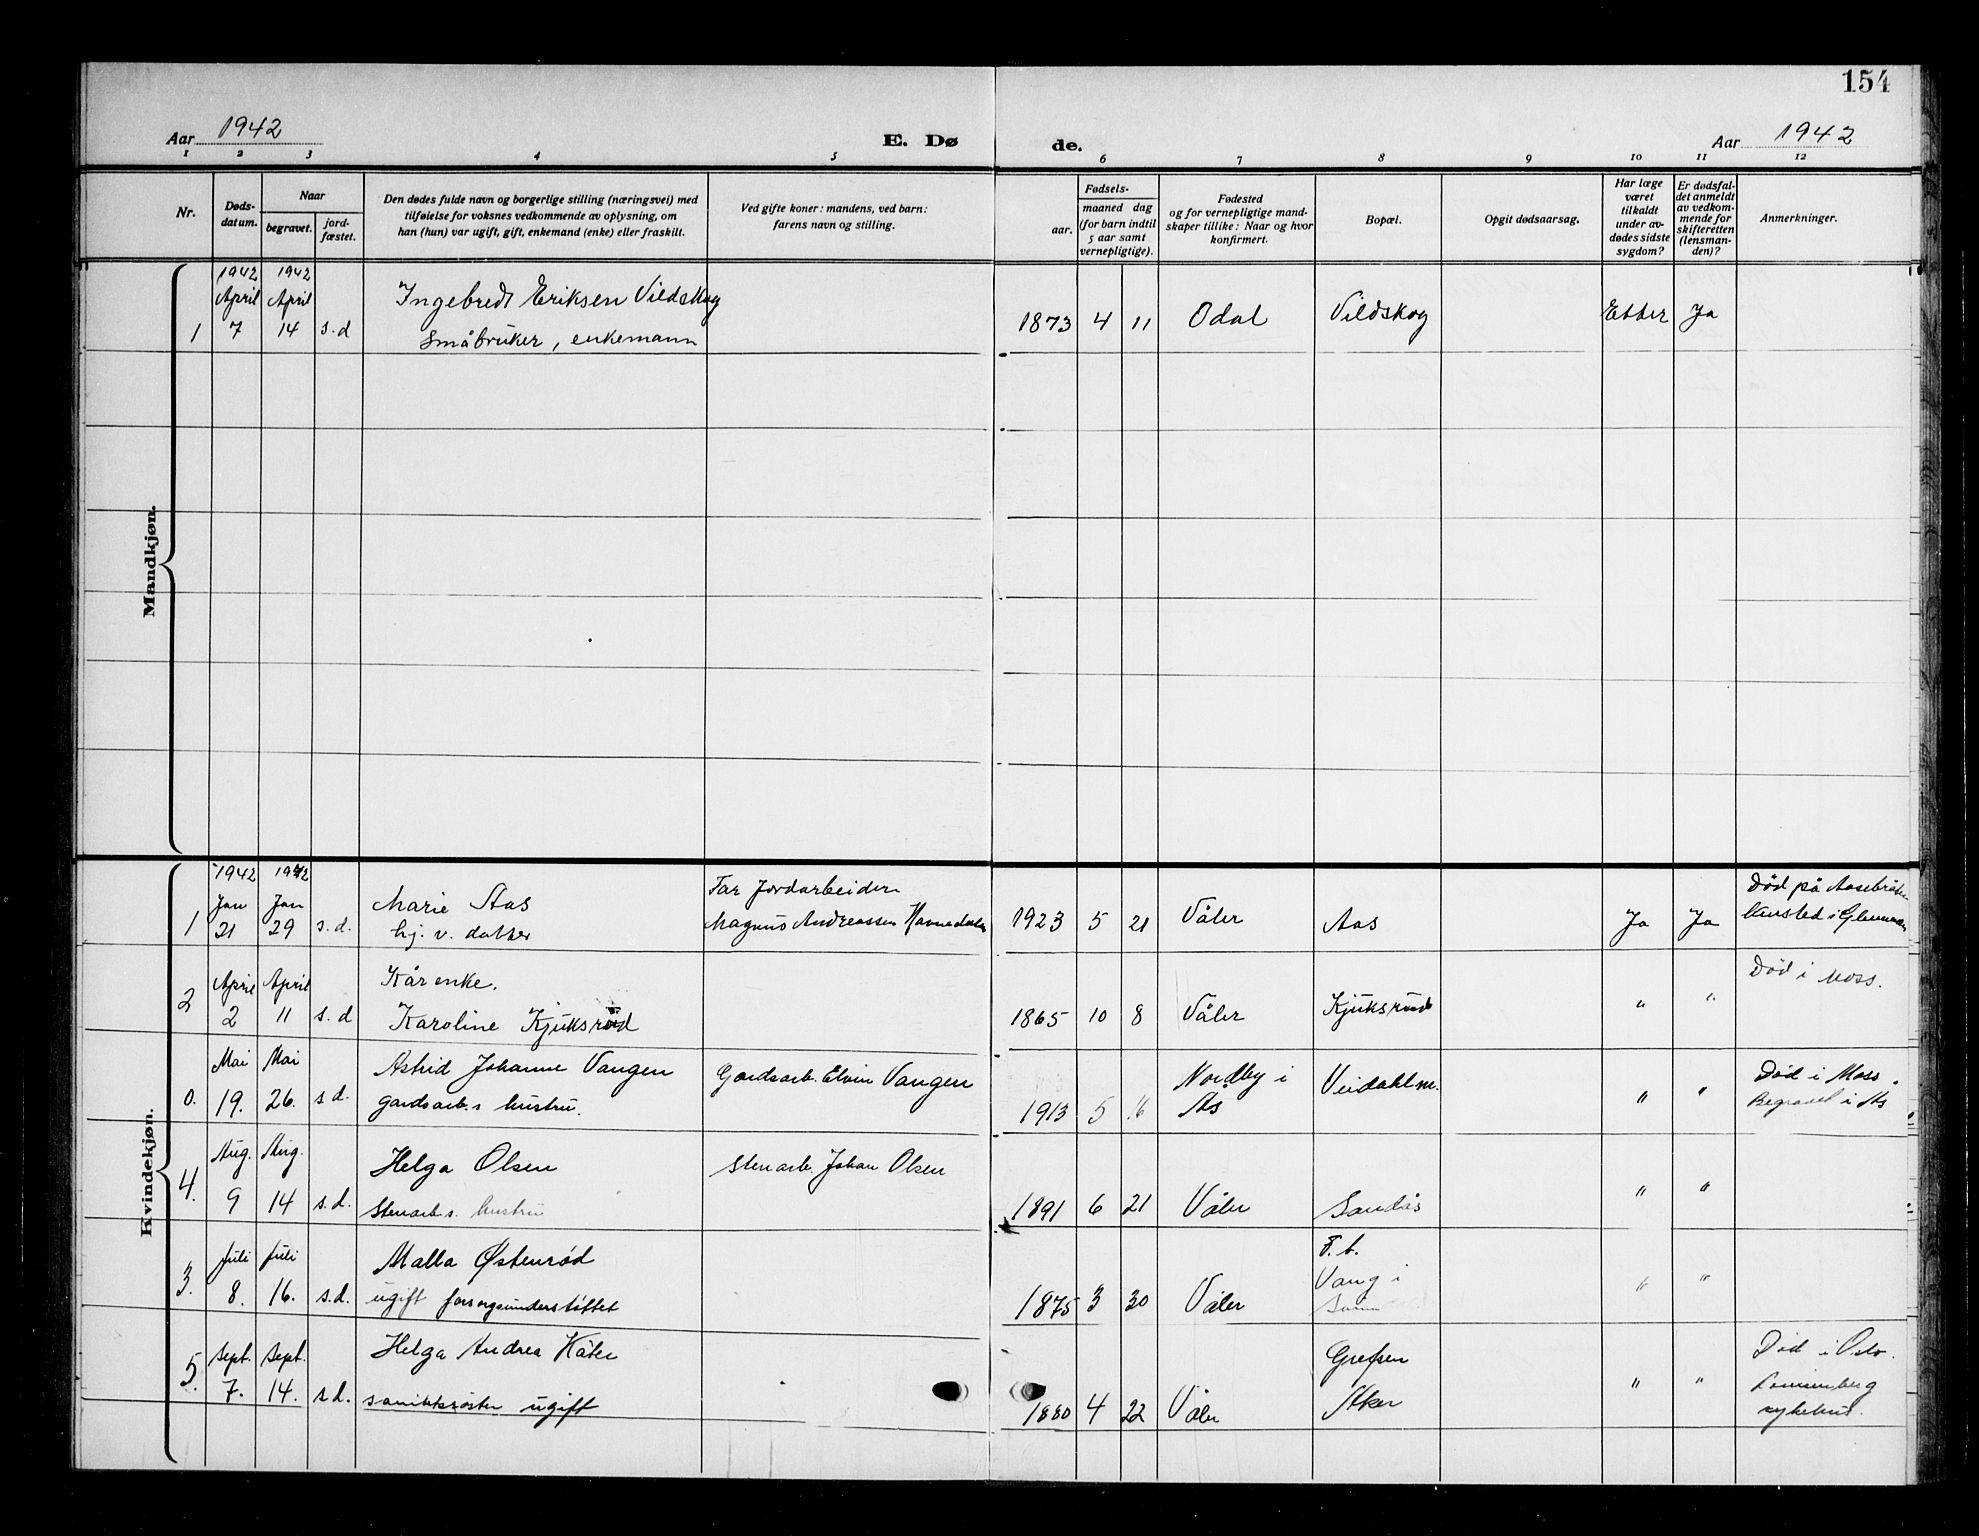 154
Aar 1942
E. Døde.
Aar 1942
1 2 3 4 5 6 7 8 9 10 11 12
Nr.
Døds-
datum.
Naar
begravet.
jord-
fæstet.
Den dødes fulde navn og borgerlige stilling (næringsvei) med
tilføielse for voksnes vedkommende av oplysning, om
han (hun) var ugift, gift, enkemand (enke) eller fraskilt.
Ved gifte koner: mandens, ved barn:
farens navn og stilling.
Fødsels-
aar.
maaned dag
(for barn indtil
5 aar samt
vernepligtige).
Fødested
og for vernepligtige mand-
skaper tillike: Naar og hvor
konfirmert.
Bopæl.
Opgit dødsaarsag.
Har læge
været
tilkaldt
under av-
dødes sidste
sygdom?
Er dødsfal-
det anmeldt
av vedkom-
mende for
skifteretten
(lensman-
den)?
Anmerkninger.
Mandkjøn.
1942 1942
April April Ingebredt Eriksen Vildskog
1 7 14 s.d Småbruker, enkemann 1873 4 11 Odal Vildskog Etter Ja
Kvindekjøn.
1942 1942
Jan Jan Marie Aas Far Jordarbeider Død på
1 21 29 s.d. hj. v. datter Magnus Andreassen 1923 5 21 Våler Aas Ja Ja i
April April Kårenke. Død i Moss.
2 2 11 s.d Karoline Kjuksrød 1865 10 8 Våler Kjuksrud " "
Mai Mai Astrid Johanne Vangen Gardsarb. Elvin Vangen Nordby i Død i Moss.
0. 19. 26. s.d. gardsarb.s hustru. 1913 5 16 Ås " " Begravet i Ås
Aug. Aug. Helga Olsen Stenarb. Johan Olsen
4. 9 14 s.d. Stenarb.s. hustru 1891 6 21 Våler Sandås " "
Juli Juli Malla Østenrød F. b.
3. 8. 16. s.d. ugift forsorgsunderstøttet 1875 3 30 Våler Vang i " "
Sept. Sept. Helga Andrea Grefsen Død i Oslo.
5. 7. 14. s.d. ugift 1880 4 22 Våler Aker " "
sykehus.